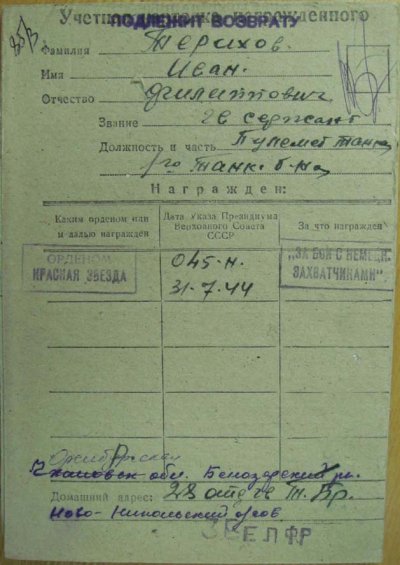 85/3
Учетная карточка награжденного
ПОДЛЕЖИТ ВОЗВРАТУ
Фамилия Терихов.
Имя Иван.
Отчество Филиппович
Звание гв сержант
Должность и часть Пулемет танка
го танк. б-на
Награжден:
Каким орденом или медалью награжден
Дата Указа Президиума Верховного Совета СССР
За что награжден
ОРДЕНОМ КРАСНАЯ ЗВЕЗДА
045-н.
31-7.44
"ЗА БОИ С НЕМЕЦК. ЗАХВАТЧИКАМИ"
обл. Белозерский
Домашний адрес: 28 отд гв Т. Бр.
Ново-Никольский
БЕЛ ФР